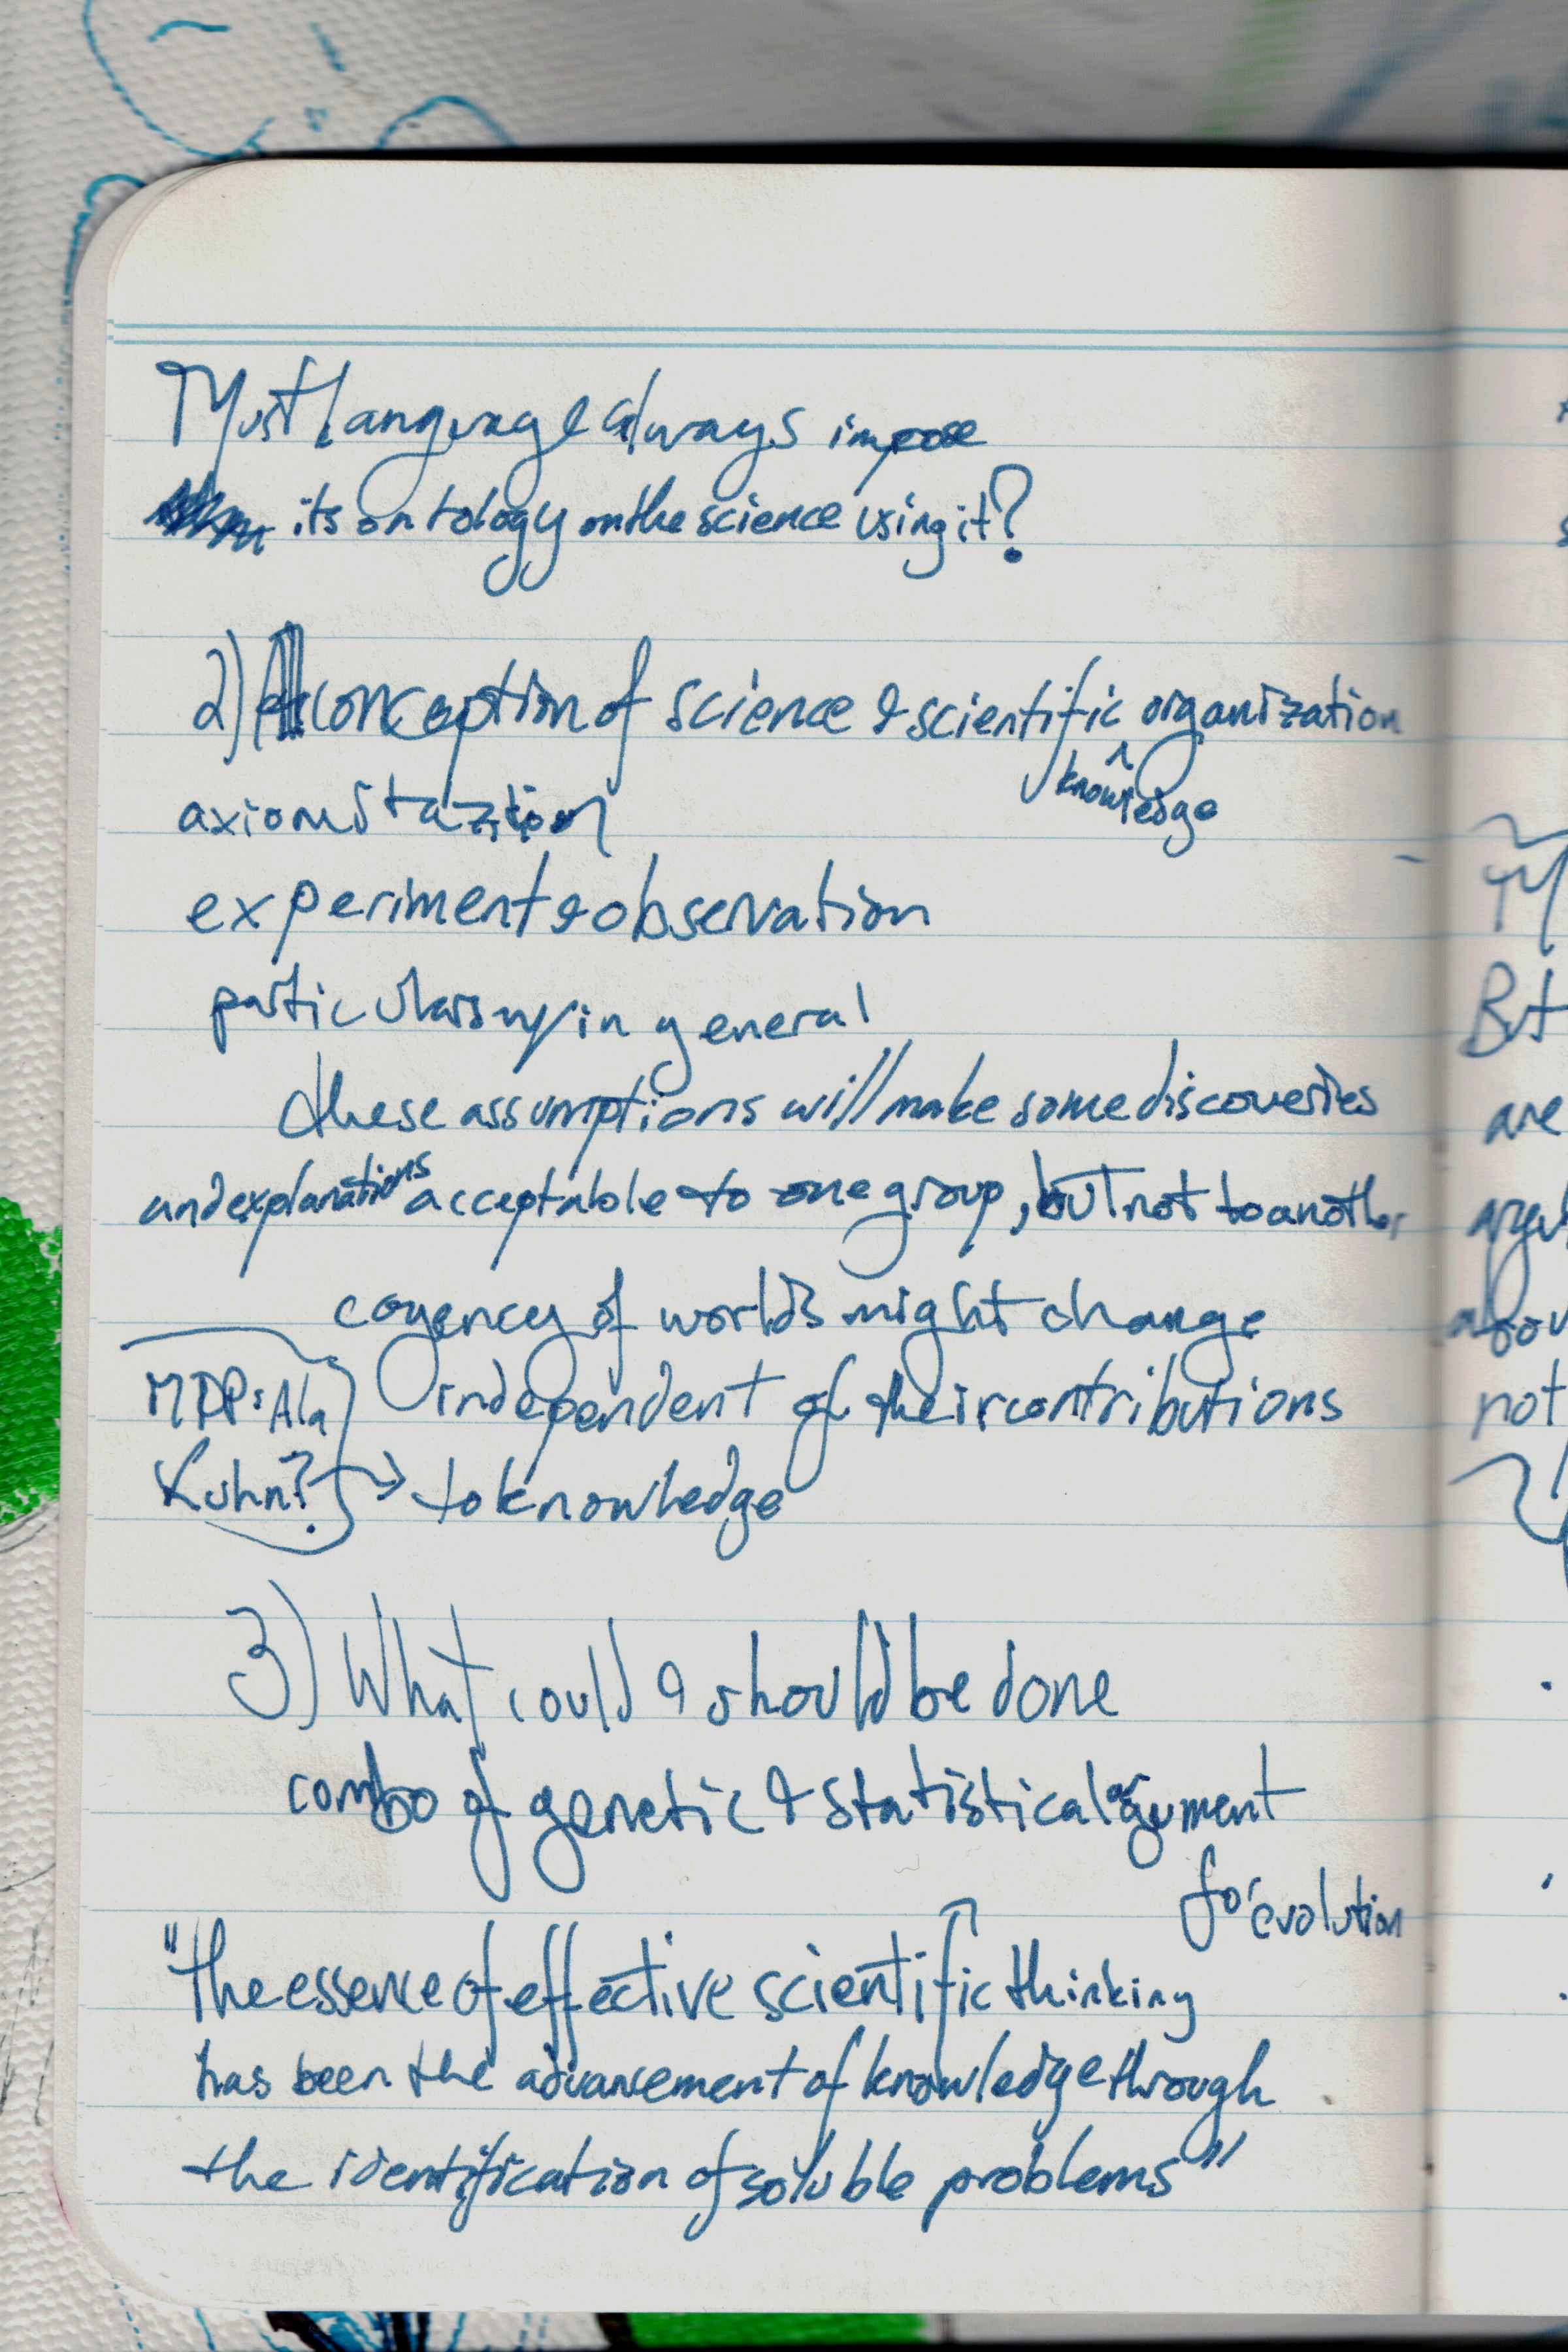 Must language always impose
its ontology on the science using it?
2) conception of science & scientific ^ organization
knowledge
axiomitaztion
experiment & observation
particularism/in general
these assumptions will make some discoveries
and explanations acceptable to one group, but not to another
cogency of worlds might change
MDP: Ala
independent of their contributions
Kuhn? → to knowledge
3) What could & should be done
combo of genetic & statistical argument
for evolution
"the essence of effective scientific thinking
has been the advancement of knowledge through
the identification of soluble problems"
But
are
not